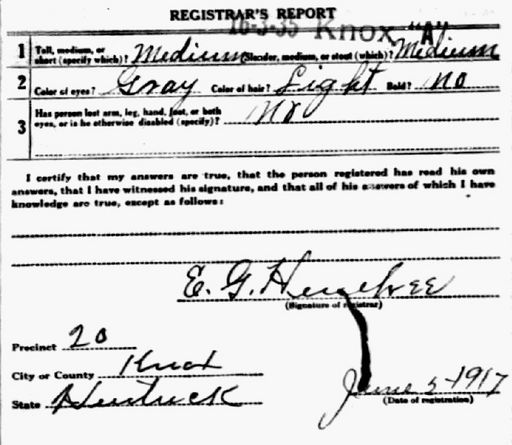 REGISTRAR'S REPORT
16-3-35 Knox "A"
1 Tall, medium, or short (specify which)? Medium Slender, medium, or stout (which)? Medium
2 Color of eyes? Gray Color of hair? Light Bald? no
3 Has person lost arm, leg, hand, foot, or both eyes, or is he otherwise disabled (specify)? No
I certify that my answers are true, that the person registered has read his own
answers, that I have witnessed his signature, and that all of his answers of which I have
knowledge are true, except as follows:
E. G.
(Signature of registrar)
Precinct 20
City or County Knox
State Kentuck
June 5-1917
(Date of registration)